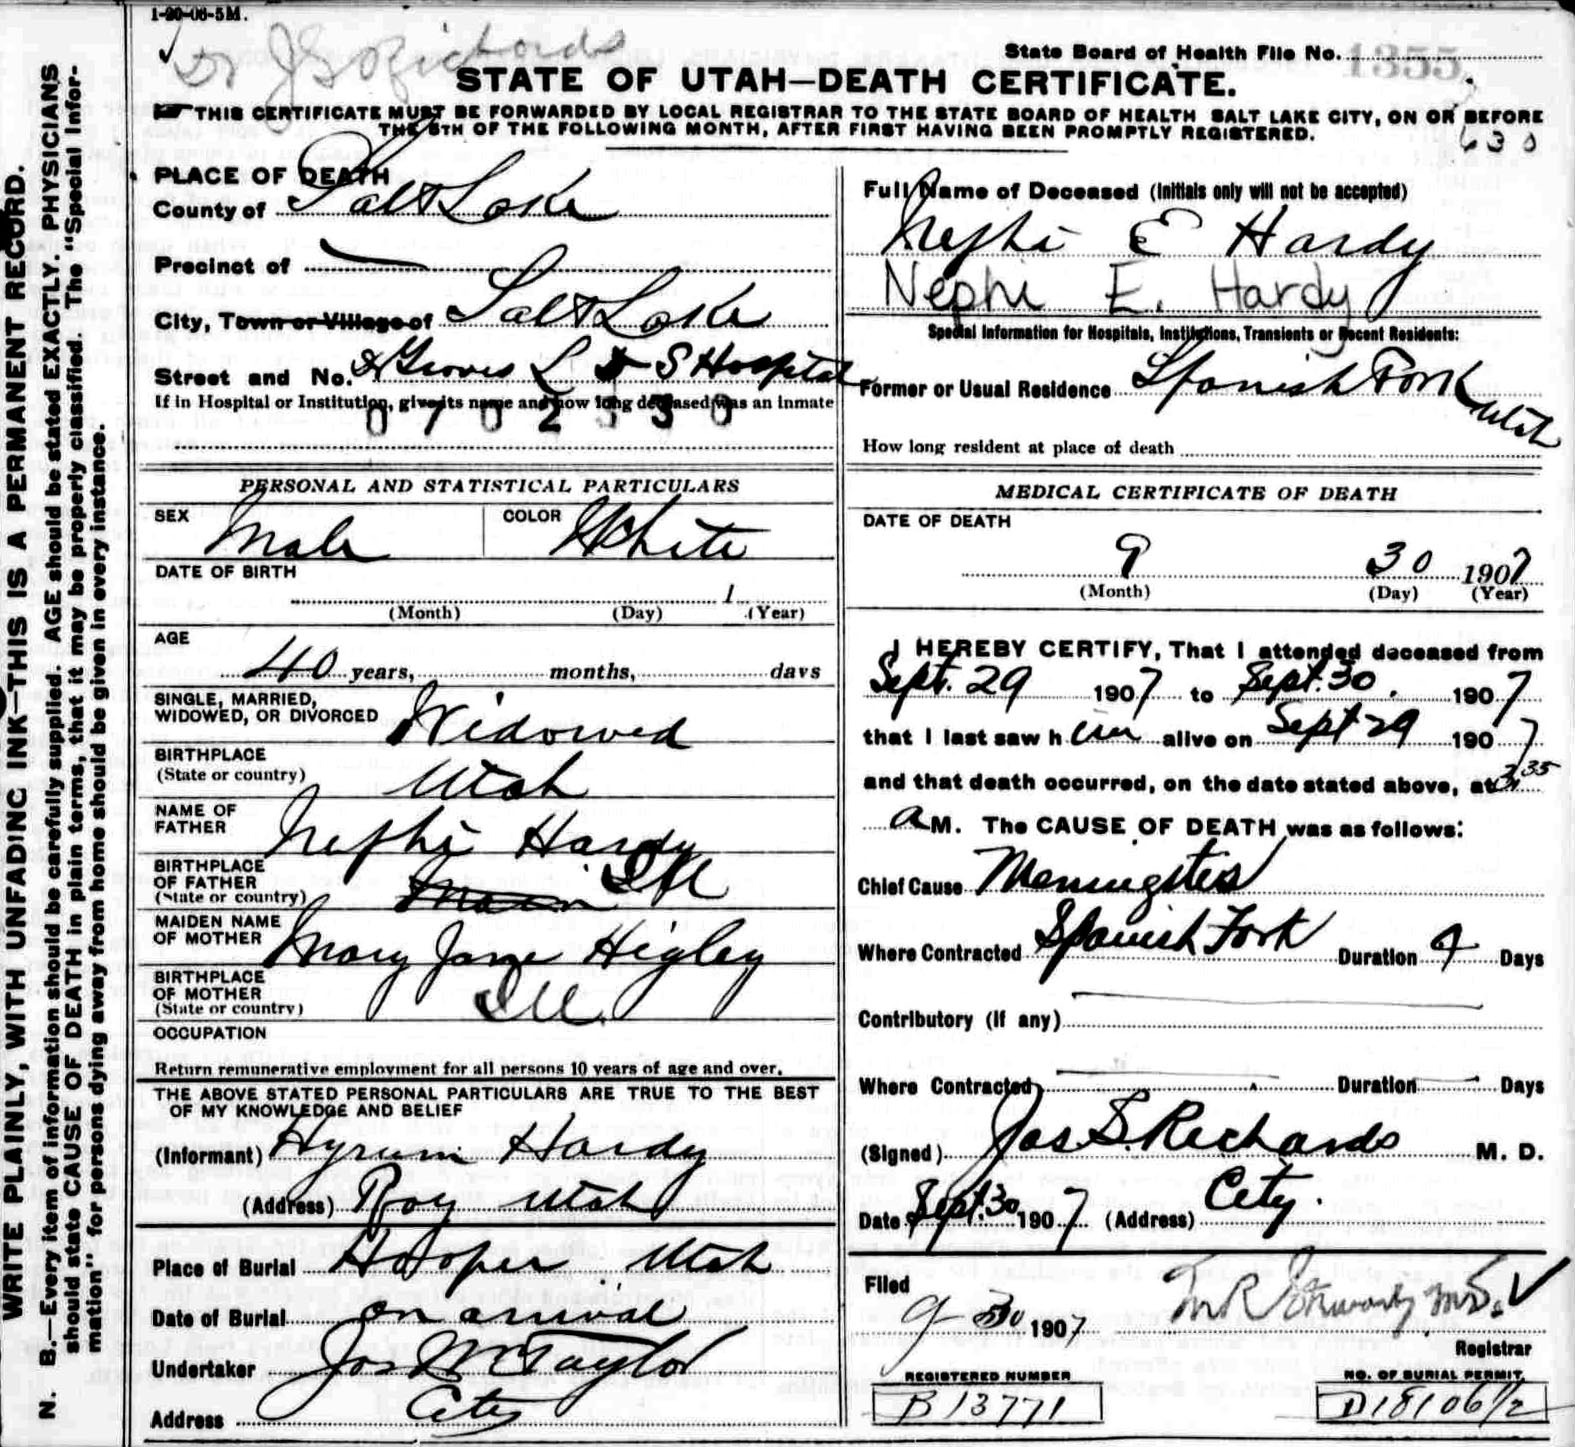 1-20-06-5M.
Dr J S Richards
State Board of Health File No. 1355
STATE OF UTAH—DEATH CERTIFICATE.
THIS CERTIFICATE MUST BE FORWARDED BY LOCAL REGISTRAR TO THE STATE BOARD OF HEALTH SALT LAKE CITY, ON OR BEFORE
THE 5TH OF THE FOLLOWING MONTH, AFTER FIRST HAVING BEEN PROMPTLY REGISTERED.
630
WRITE PLAINLY, WITH UNFADING INK—THIS IS A PERMANENT RECORD.
N. B.—Every item of information should be carefully supplied. AGE should be stated EXACTLY. PHYSICIANS
should state CAUSE OF DEATH in plain terms, that it may be properly classified. The "Special Infor-
mation" for persons dying away from home should be given in every instance.
PLACE OF DEATH
County of Salt Lake
Precinct of
City, Town or Village of Salt Lake
Street and No. Groves L D S Hospital
If in Hospital or Institution, give its name and how long deceased was an inmate
0702330
PERSONAL AND STATISTICAL PARTICULARS
SEX Male COLOR White
DATE OF BIRTH
1
(Month) (Day) (Year)
AGE
40 years, months, days
SINGLE, MARRIED,
WIDOWED, OR DIVORCED Widowed
BIRTHPLACE
(State or country) Utah
NAME OF
FATHER Nephi Hardy
BIRTHPLACE
OF FATHER
(State or country) Ill
MAIDEN NAME
OF MOTHER Mary Jane Higley
BIRTHPLACE
OF MOTHER
(State or country) Ill.
OCCUPATION
Return remunerative employment for all persons 10 years of age and over.
THE ABOVE STATED PERSONAL PARTICULARS ARE TRUE TO THE BEST
OF MY KNOWLEDGE AND BELIEF
(Informant) Hyrum Hardy
(Address) Roy Utah
Place of Burial Hooper Utah
Date of Burial on arrival
Undertaker Jos Wm Taylor
Address City
Full Name of Deceased (Initials only will not be accepted)
Nephi E Hardy
Nephi E. Hardy
Special Information for Hospitals, Institutions, Transients or Recent Residents:
Former or Usual Residence Spanish Fork Utah
How long resident at place of death
MEDICAL CERTIFICATE OF DEATH
DATE OF DEATH
9 30 1907
(Month) (Day) (Year)
I HEREBY CERTIFY, That I attended deceased from
Sept. 29 1907 to Sept. 30. 1907
that I last saw him alive on Sept 29 1907
and that death occurred, on the date stated above, at 3:35
a M. The CAUSE OF DEATH was as follows:
Chief Cause Meningites
Where Contracted Spanish Fork Duration 9 Days
Contributory (If any)
Where Contracted Duration Days
(Signed) Jas S. Richards M. D.
Date Sept. 30 1907 (Address) City.
Filed
9-30 1907
Registrar
REGISTERED NUMBER
B13771
NO. OF BURIAL PERMIT,
D18106 1/2